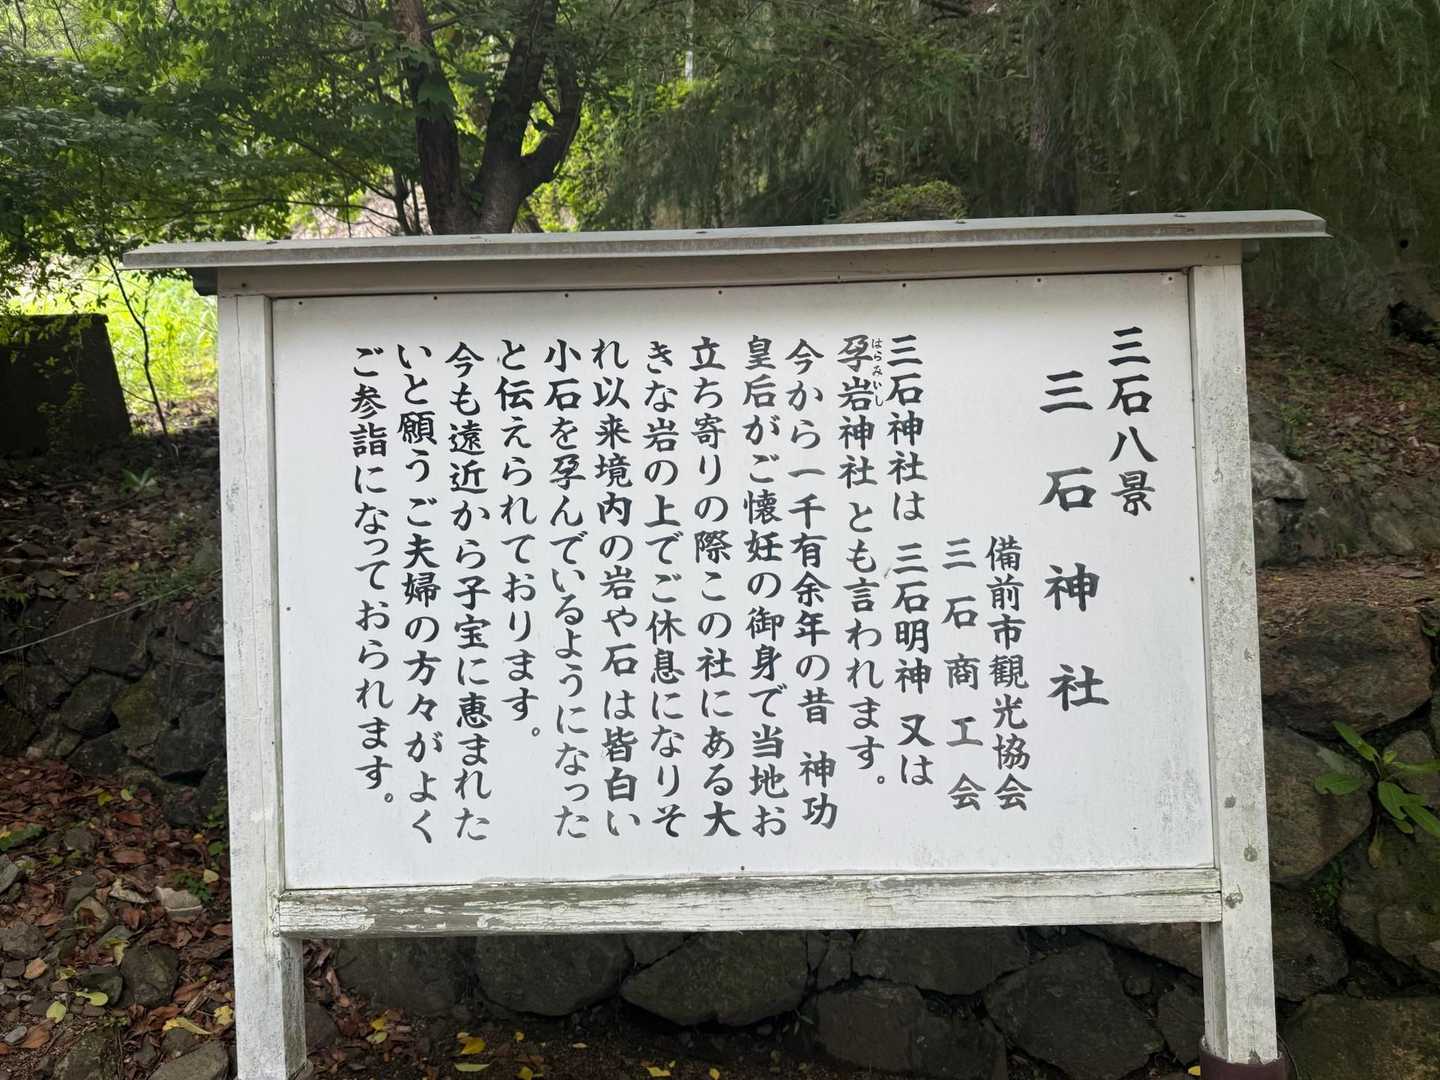 三石八景
三石神社
備前市観光協会
三石商工会
三石神社は 三石明神 又は
孕岩神社とも言われます。
はらみいし
今から一千有余年の昔 神功
皇后がご懐妊の御身で当地お
立ち寄りの際この社にある大
きな岩の上でご休息になりそ
れ以来境内の岩や石は皆白い
小石を孕んでいるようになった
と伝えられております。
今も遠近から子宝に恵まれた
いと願うご夫婦の方々がよく
ご参詣になっておられます。